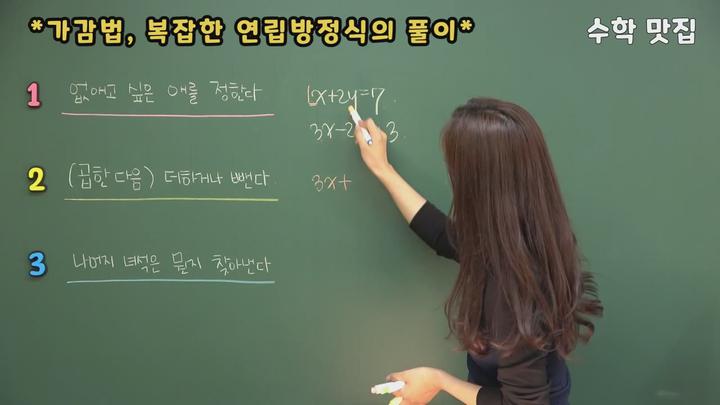 *가감법, 복잡한 연립방정식의 풀이*
수학 맛집
1 없애고 싶은 애를 정한다
2 (곱한 다음) 더하거나 뺀다.
3 나머지 녀석은 뭔지 찾아낸다
x+2y=7.
3x-2 3.
3x+